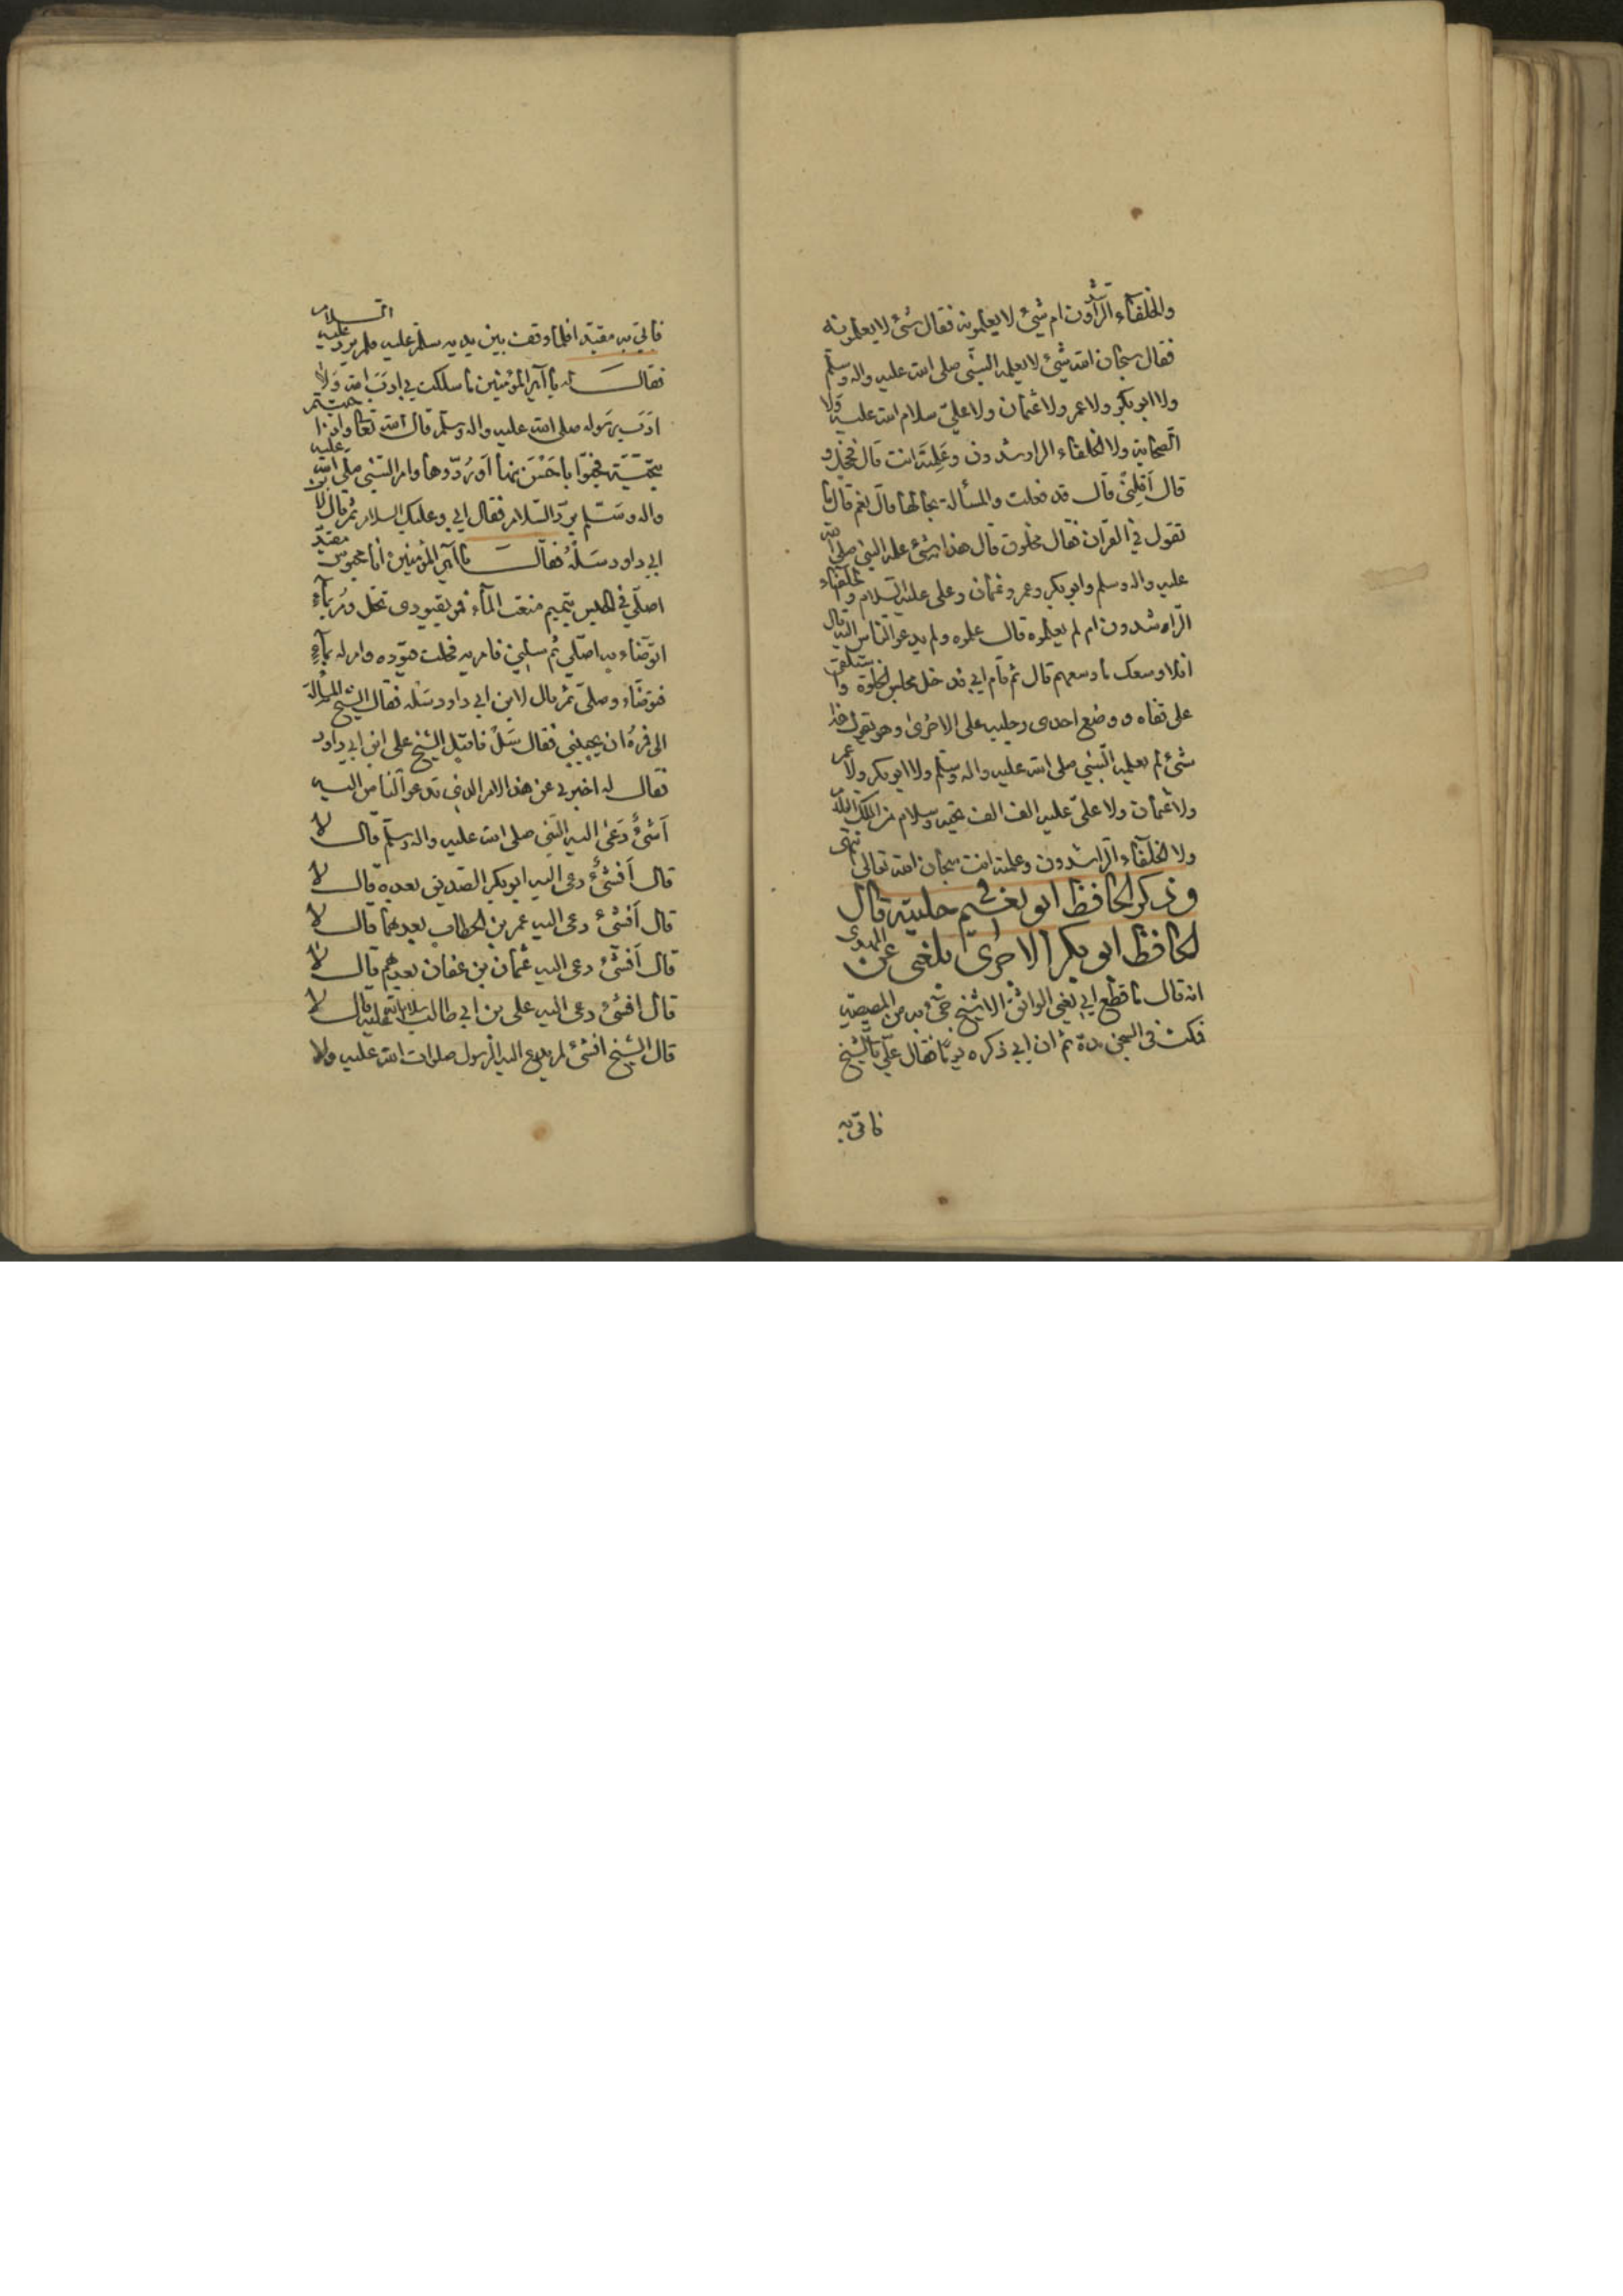 والخلفآء الرّاشدون ام شيئ لا يعلمونه فقال شئ لا يعلمونه
فقال سبحان الله شيئ لا يعلمه النبّي صلى الله عليه واله وسلّم
ولا ابو بكر ولا عمر ولا عثمان ولا عليّ سلام الله عليه ولا
الصحابة ولا الخلفاء الراشدون وعَلِمتَه انت قال فخجل و
قال أقِلني قال قد فعلت والمسألة بحالها قال نعم قال ما
تقول في القرآن فقال مخلوق قال هذا شئ علمه النبي صلى الله
عليه واله وسلم وابو بكر وعمر وعثمان وعلى عليه السلام والخلفاء
الرّاشدون ام لم يعلموه قال علموه ولم يدعو الناس اليه قال
افلا وسعك ما وسعهم قال ثم قام ابي فدخل مجلس الخلوة واستلقى
على قفاه ووضع احدى رجليه على الاخرى وهو يقول هذا
شئ لم يعلمه النبّي صلى الله عليه واله وسلم ولا ابو بكر ولا عمر
ولا عثمان ولا علىّ عليه الف الف تحيه وسلام من الملك
ولا الخلفآء الراشدون وعلمته انت سبحان الله تعالى انتهى
وذكر الحافظ ابو نعيم في حليته قال
الحافظ ابو بكر الاجرى بلغنى عن المهدى
انه قال ما قطع ابي يعني الواثق الا شيخ جئ به من المصيصة
فمكث في السجن مدة ثم ان ابي ذكره يومًا فقال عليّ بالشيخ
فاتى به
فاتي به مقيّدا فلما وقف بين يديه سلّم عليه فلم يردّ عليه السلام
فقال له يا امير المؤمنين ما سلكت بي ادب الله ولا
ادب رسوله صلى الله عليه واله وسلم قال الله تعالى واذا حييتم
بتحيّة فحيّوا بأحسَنَ منها أو رُدّوها وامر النبّي صلّى الله عليه
واله وسلّم بردّ السلام فقال ابي وعليك السلام ثم قال لابن
ابي داود سَلْهُ فقال يا امير المؤمنين انا محبوس مقيّد
اصلّي في الحبس بتيمم منعت المآء فمر بقيودى تحل ومُر بمآء
اتوضّاء به اصلّي ثم سلني فامر به فحلت قيوده وامر له بمآء
فتوضّاء وصلىّ ثم قال لابن ابي داود سَلْه فقال الشيخ المسألة
الى فمره ان يجيبني فقال سَلْ فاقبل الشيخ على ابن ابي داود
فقال له اخبرني عن هذا الامر الذي تدعو الناس اليه
أشئٌ دَعَى اليه النبّي صلى الله عليه واله وسلّم قال لا
قال أفشئٌ دعى اليه ابو بكر الصديق بعده قال لا
قال أفشئ دعى اليه عمر بن الخطاب بعدهما قال لا
قال أفشئ دعى اليه عثمان بن عفان بعدهم قال لا
قال افشئ دعى اليه على بن ابي طالب سلام الله عليه قال لا
قال الشيخ افشئ لم يدع اليه الرسول صلوات الله عليه ولا